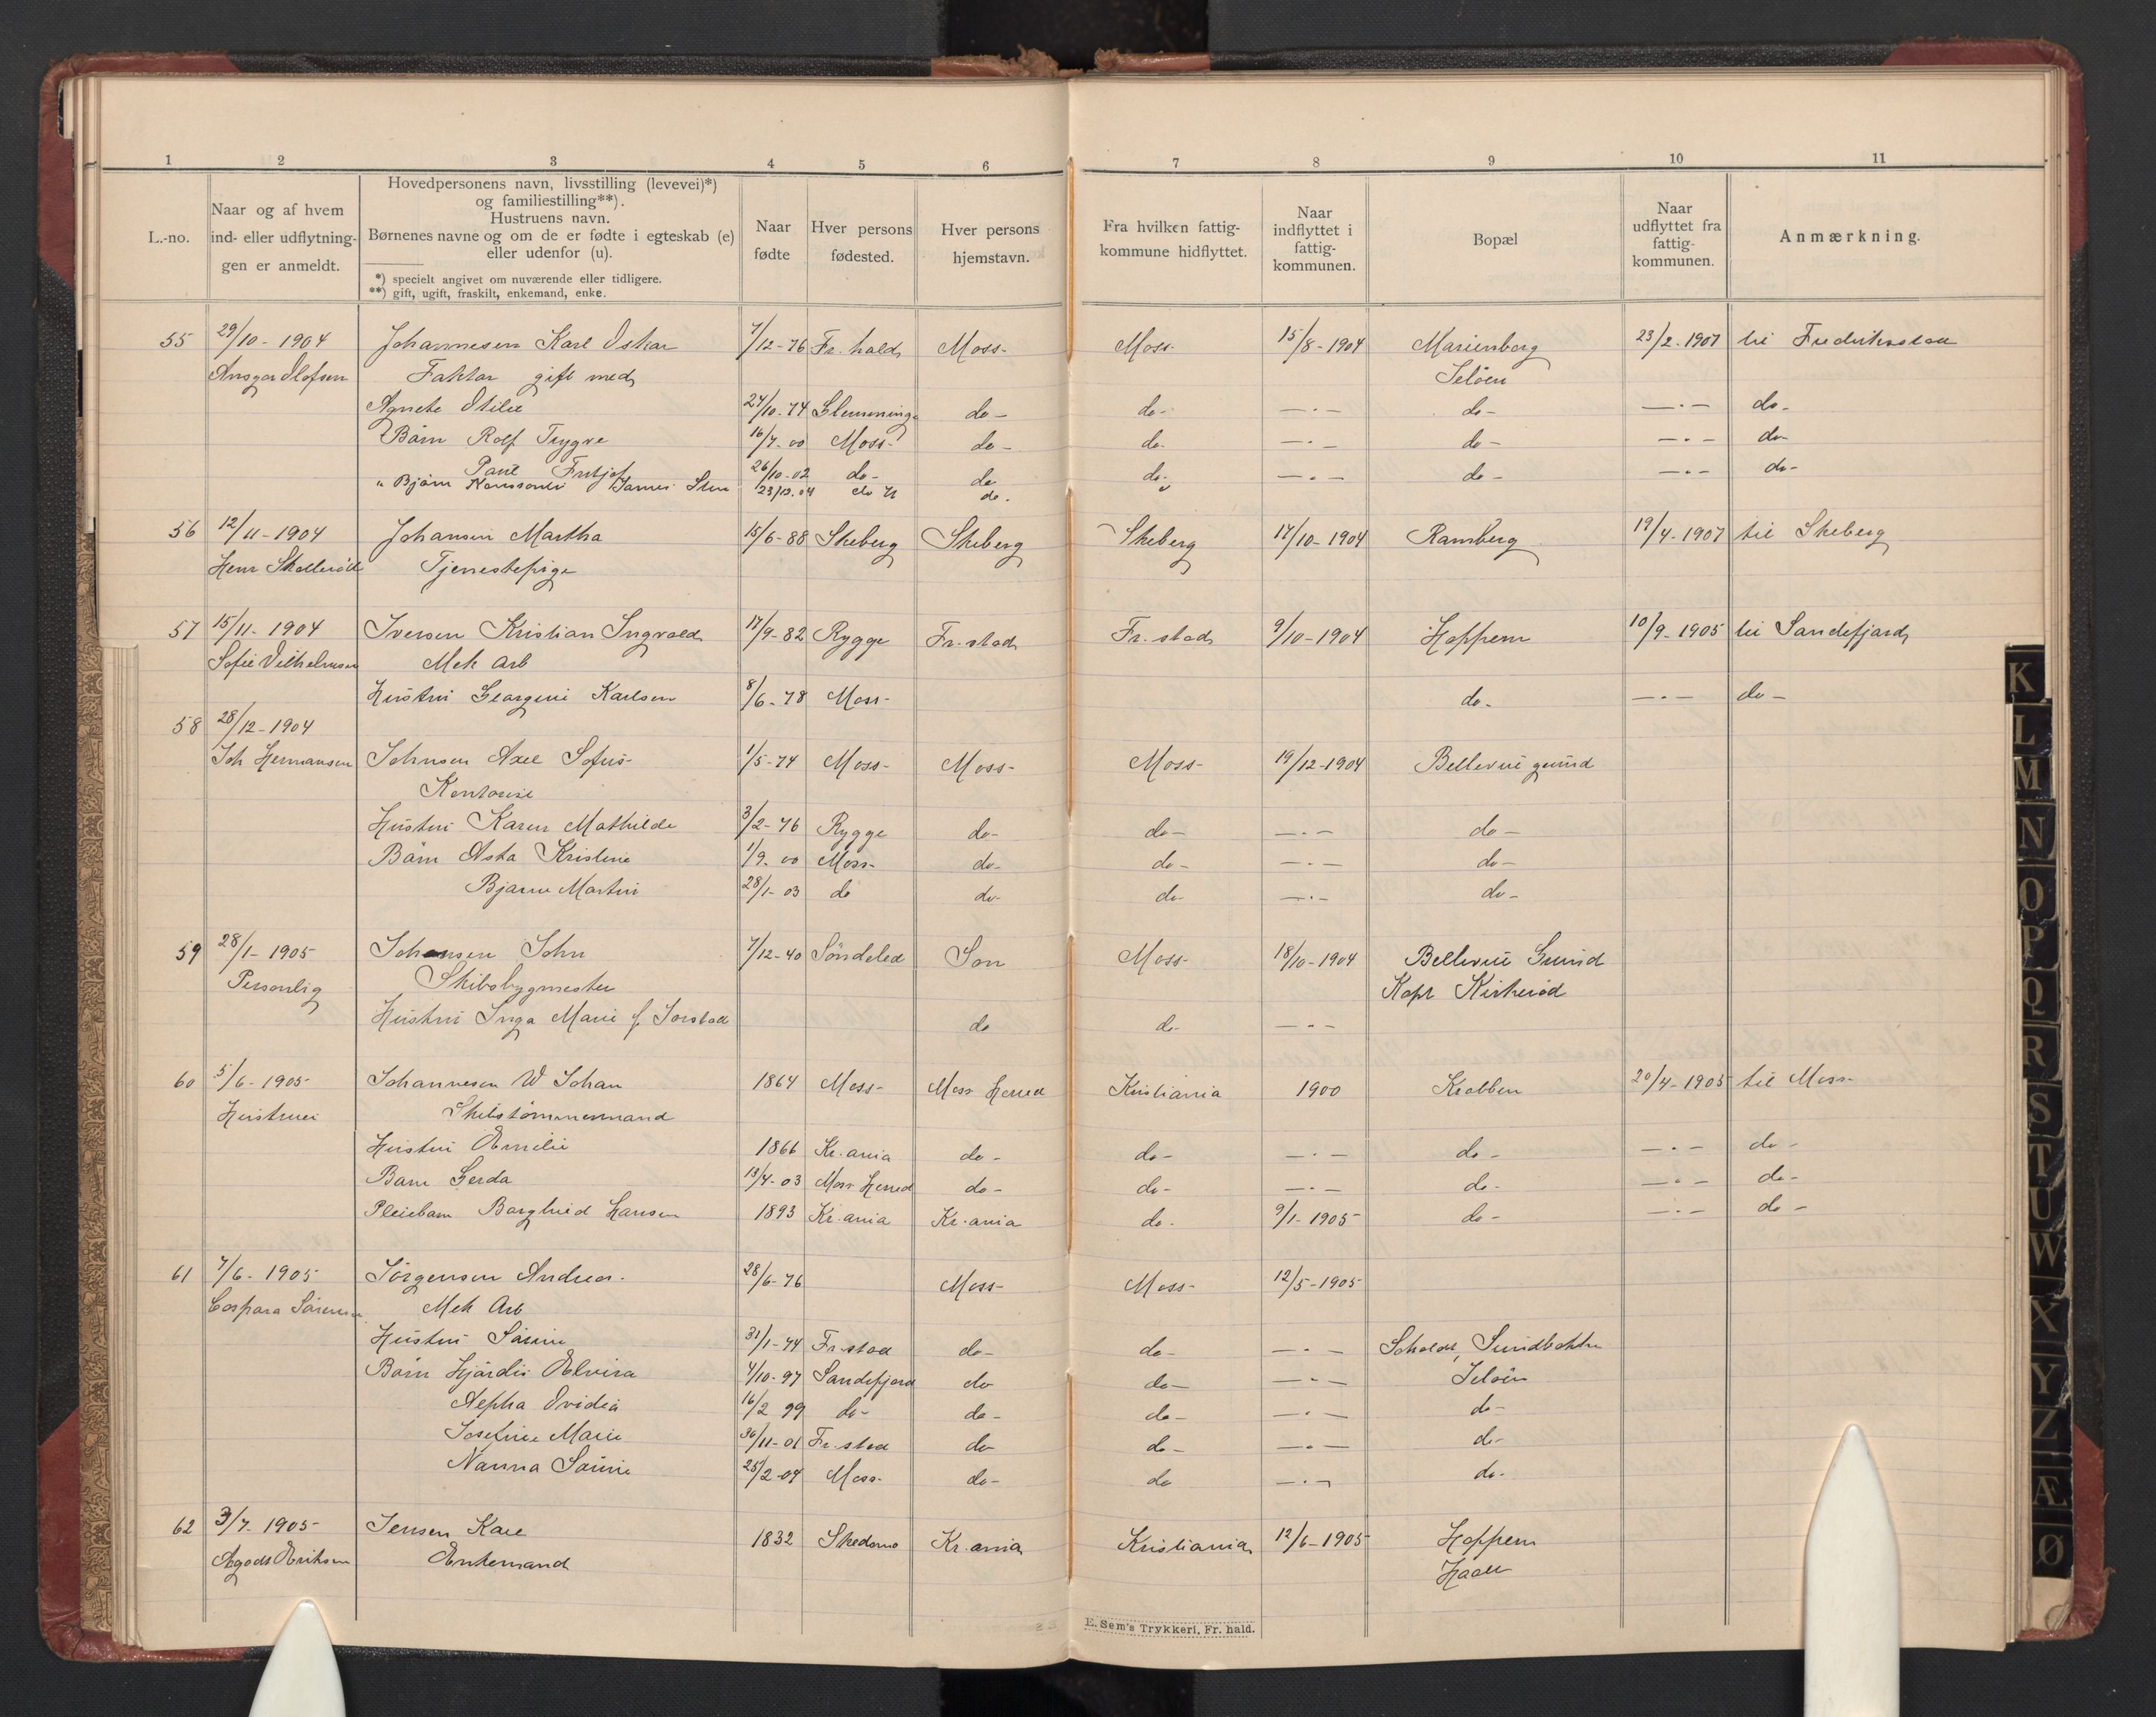 1 2 3 4 5 6 7 8 9 10 11
L.-no.
Naar og af hvem
ind- eller udflytnin-
gen er anmeldt.
Hovedpersonens navn, livsstilling (levevei)*)
og familiestilling**).
Hustruens navn.
Børnenes navne og om de er fødte i egteskab (e)
eller udenfor (u).
*) specielt angivet om nuværende eller tidligere.
**) gift, ugift, fraskilt, enkemand, enke.
Naar
fødte
Hver persons
fødested.
Hver persons
hjemstavn.
Fra hvilken fattig-
kommune hidflyttet.
Naar
indflyttet i
fattig-
kommunen.
Bopæl
Naar
udflyttet fra
fattig-
kommunen.
Anmærkning.
55 29/10 - 1904 Johannesen Karl Oskar 7/12-76 Fr. hald Moss- Moss- 15/8-1904 Marienborg 23/2-1907 til Fredriksstad
Ansgar Olofsen Faktor gift med Jeløen
Agnete Otilie 24/10-74 Glemminge do- do- —·— do- —·— do-
Børn Rolf Trygve 16/7-00 Moss- do- do- —·— do- —·— do-
Paul Fritjof 26/10-02 do- do do- —·— do- —·— do-
" Bjørn James Sten 23/12.04 do do.
56 12/11-1904 Johansen Martha 15/6-88 Skeberg Skeberg Skeberg 17/10-1904 Ramberg 19/4-1907 til Skeberg
Henr Skallerød Tjenestepige
57 15/11-1904 Iversen Kristian Ingvald 17/9-82 Rygge Fr. stad Fr. stad 9/10-1904 Hoppern 10/9-1905 til Sandefjord
Sofie Vilhelmsen Mek Arb
Hustru Georgine Karlsen 8/6-78 Moss- do- —·— do-
58 28/12-1904
Joh Hermansen Johnsen Axel Sofus 1/5-74 Moss- Moss- Moss- 19/12-1904 Bellevue grund
Kontorist
Hustru Karen Mathilde 3/2-76 Rygge do- do- —·— do-
Børn Asta Kristine 1/9-00 Moss- do- do- —·— do-
Bjarne Martin 28/1-03 do do- do- —·— do-
59 28/1-1905 Johansen John 7/12-40 Søndeled Son Moss- 18/10-1904 Bellevue Grund
Personlig Skibsbygmester Kapt Kirkerød
Hustru Inga Marie f. Jorstad do do- —·—
60 5/6-1905- Johannesen W Johan 1864 Moss- Moss Herred Kristiania 1900 Krabben 20/4-1905 til Moss-
Hustruen Skibstømmermand
Hustru Emilie 1866 Kr.ania do- do- —·— do- —·— do-
Barn Gerda 13/4-03 Moss Herred do- do- —·— do- —·— do-
Pleiebarn Borghild Hansen 1893 Kr.ania Kr.ania do- 9/1-1905- do- —·— do-
61 7/6-1905- Jørgensen Andreas 28/6-76 Moss- Moss- 12/5-1905-
Caspara Sørensen Mek Arb
Hustru Sørine 31/1-74 Fr.stad do- do- —·— Schalds, Sundbakken
Børn Hjørdis Elvira 4/10-97 Sandefjord do do- —·— Jeløen
Aepha Ovidia 16/2 99 do- do- do- —·— do-
Josefine Marie 30/11-01 Fr.stad do do- —·— do-
Nanna Sørine 25/2-04 Moss- do- do —·— do-
62 3/7-1905- Jensen Kare 1832 Skedsmo Kr.ania Kristiania 12/6-1905- Hoppern
Agods Eriksen Enkemand
E. Sem's Trykkeri, Fr. hald.
K
L
M
N
O
P
Q
R
S
T
U
W
X
Y
Z
Æ
Ø